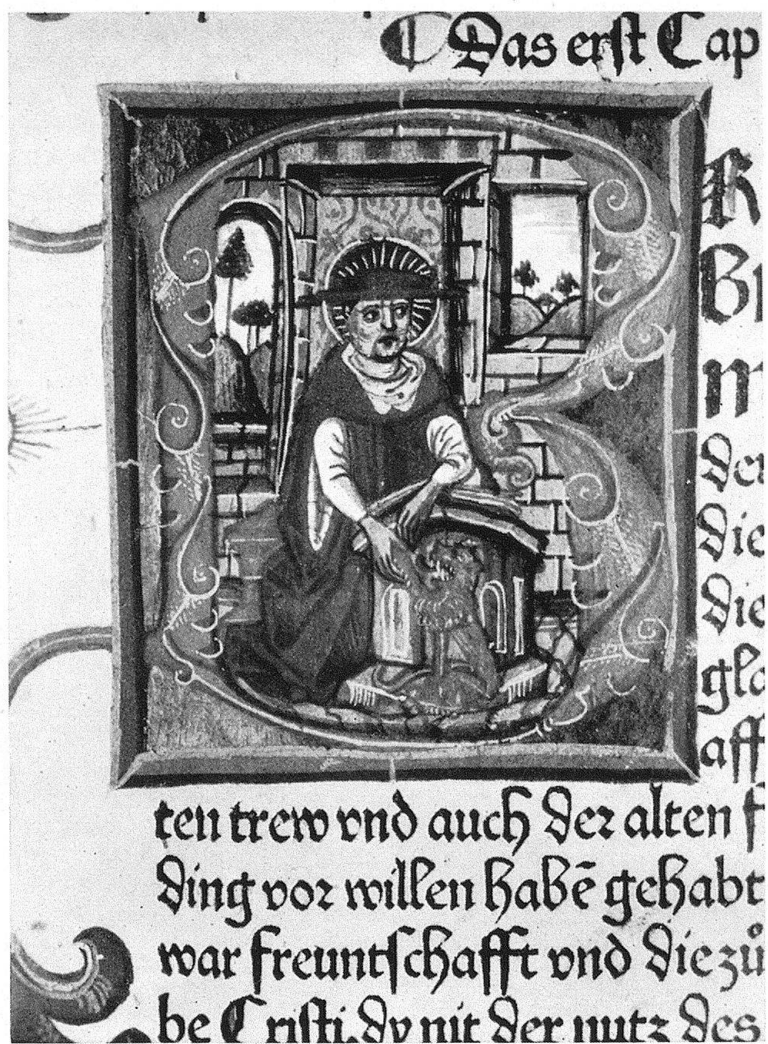 Das erst Cap
R
Br
m
der
die
die
gla
aff
ten trew vnd auch der alten f
ding vor willen habē gehabt
war freuntschafft vnd die zů
be Cristi. dy nit der nutz des